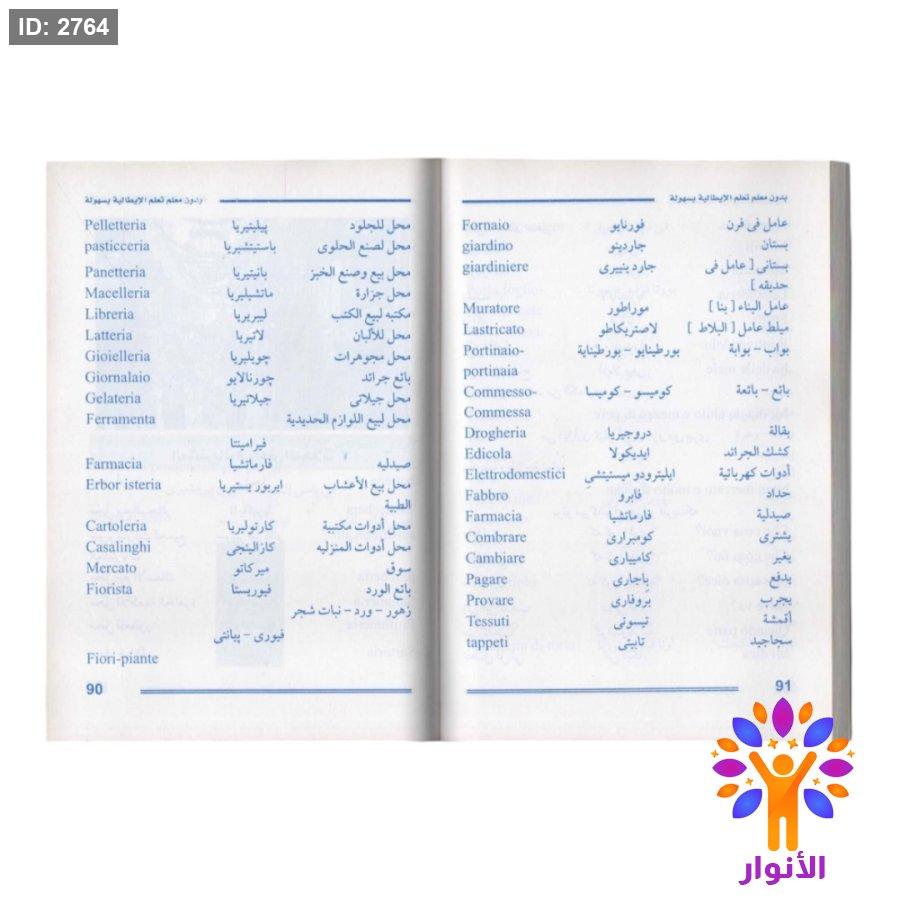 ID: 2764
بدون معلم تعلم الإيطالية بسهولة
Pelletteria پيليتيريا محل للجلود
pasticceria باستيتشيريا محل لصنع الحلوى
Panetteria بانيتيريا محل بيع وصنع الخبز
Macelleria ماتشيليريا محل جزارة
Libreria ليبريريا مكتبه لبيع الكتب
Latteria لاتيريا محل للألبان
Gioielleria جويليريا محل مجوهرات
Giornalaio چورنالايو بائع جرائد
Gelateria جيلاتيريا محل جيلاتى
Ferramenta محل لبيع اللوازم الحديدية
فيرامينتا
Farmacia فارماتشيا صيدليه
Erbor isteria ايربور يستيريا محل بيع الأعشاب
الطبية
Cartoleria كارتوليريا محل أدوات مكتبية
Casalinghi كازالينجى محل أدوات المنزليه
Mercato ميركاتو سوق
Fiorista فيوريستا بائع الورد
زهور – ورد – نبات شجر
فيورى – پيانتى
Fiori-piante
90
بدون معلم تعلم الإيطالية بسهولة
Fornaio فورنايو عامل فى فرن
giardino جاردينو بستان
giardiniere جارد ينييرى بستانى [ عامل فى
حديقه ]
Muratore موراطور عامل البناء [ بنا ]
Lastricato لاصتريكاطو مبلط عامل [ البلاط ]
Portinaio- بورطينايو – بورطيناية بواب – بوابة
portinaia
Commesso- كوميسو – كوميسا بائع – بائعة
Commessa
Drogheria دروجيريا بقالة
Edicola ايديكولا كشك الجرائد
Elettrodomestici ايليترودو ميستيتشي أدوات كهربائية
Fabbro فابرو حداد
Farmacia فارماتشيا صيدلية
Combrare كومبرارى يشترى
Cambiare كامبيارى يغير
Pagare پاجارى يدفع
Provare بروفارى يجرب
Tessuti تيسوتى أقمشة
tappeti تابيتى سجاجيد
91
الأنوار